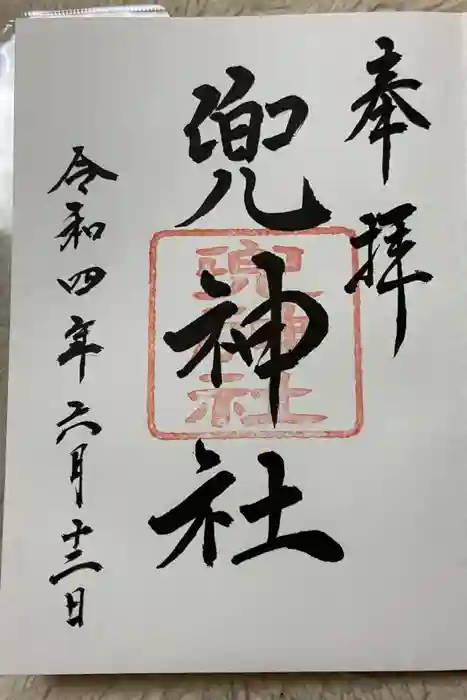 奉拝
兜神社
兜神社
令和四年六月十三日